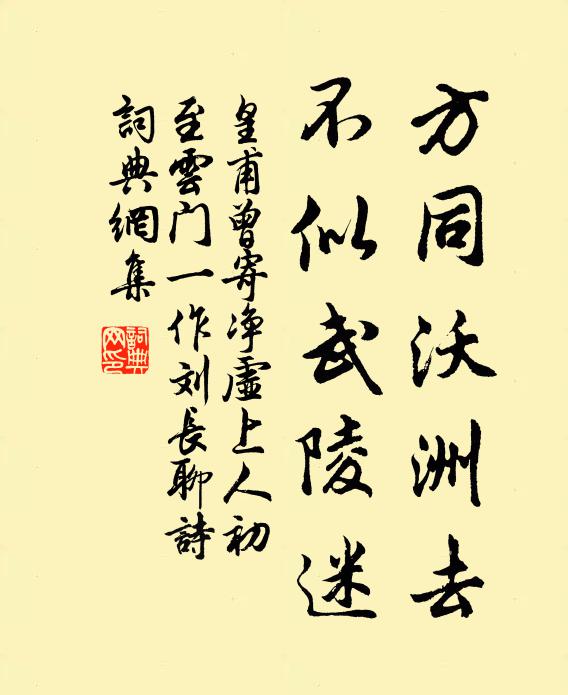 方同沃洲去
不似武陵迷
皇甫曾寄净虛上人初
至雲门一作刘長聊詩
詞典網集
詞典
网印